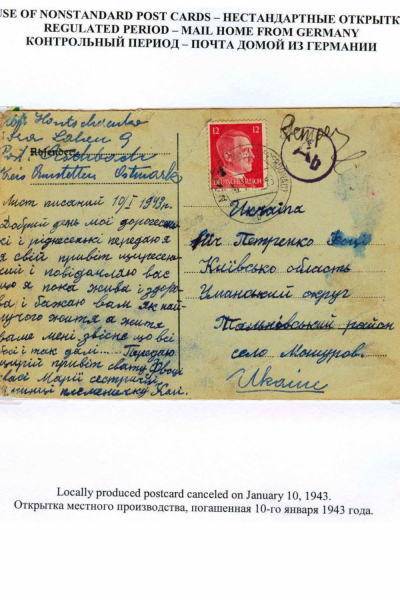 USE OF NONSTANDARD POST CARDS – НЕСТАНДАРТНЫЕ ОТКРЫТК
REGULATED PERIOD – MAIL HOME FROM GERMANY
КОНТРОЛЬНЫЙ ПЕРИОД – ПОЧТА ДОМОЙ ИЗ ГЕРМАНИИ
Absender:
Kreis Amstetten Ostmark
12 12
DEUTSCHES REICH
Ab
Лист писаний 10/I 1943р.
Добрий день мої дорогесень
кі і ріднесенькі передаю я
я свій привіт щиросен
ний і повідомляю вас
що я пока жива і здоро
ва і бажаю вам як най
лучого життя а життя
ваше мені звісне що всі
бої і так далі... Передаю
щирий привіт свату
Марії сестриній
племеничку Колі.
Україна
für Петренко
Київсько область
Уманський округ
Тальновський район
село Машуров.
Ukaine
Locally produced postcard canceled on January 10, 1943.
Открытка местного производства, погашенная 10-го января 1943 года.